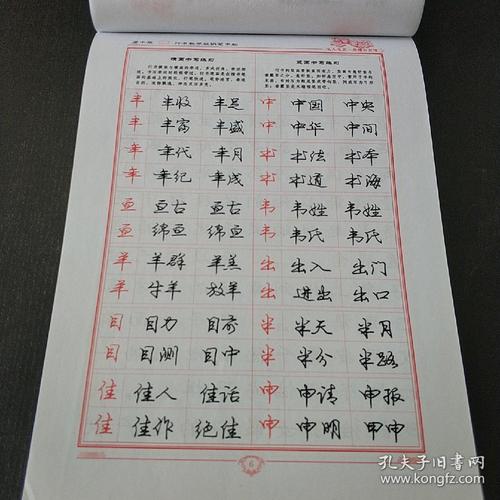 横画中写练习 竖画中写练习
丰 丰收 丰足 中 中国 中央
丰 丰富 丰盛 中 中华 中间
年 年代 年月 书 书法 书本
年 年纪 年成 书 书道 书海
亘 亘古 亘古 韦 韦姓 韦姓
亘 绵亘 绵亘 韦 韦氏 韦氏
羊 羊群 羊羔 出 出入 出门
羊 牛羊 放羊 出 进出 出口
目 目力 目前 半 半天 半月
目 目测 目中 半 半分 半路
佳 佳人 佳话 申 申请 申报
佳 佳作 绝佳 申 申明 甲申
6
孔夫子旧书网
www.kongfz.com